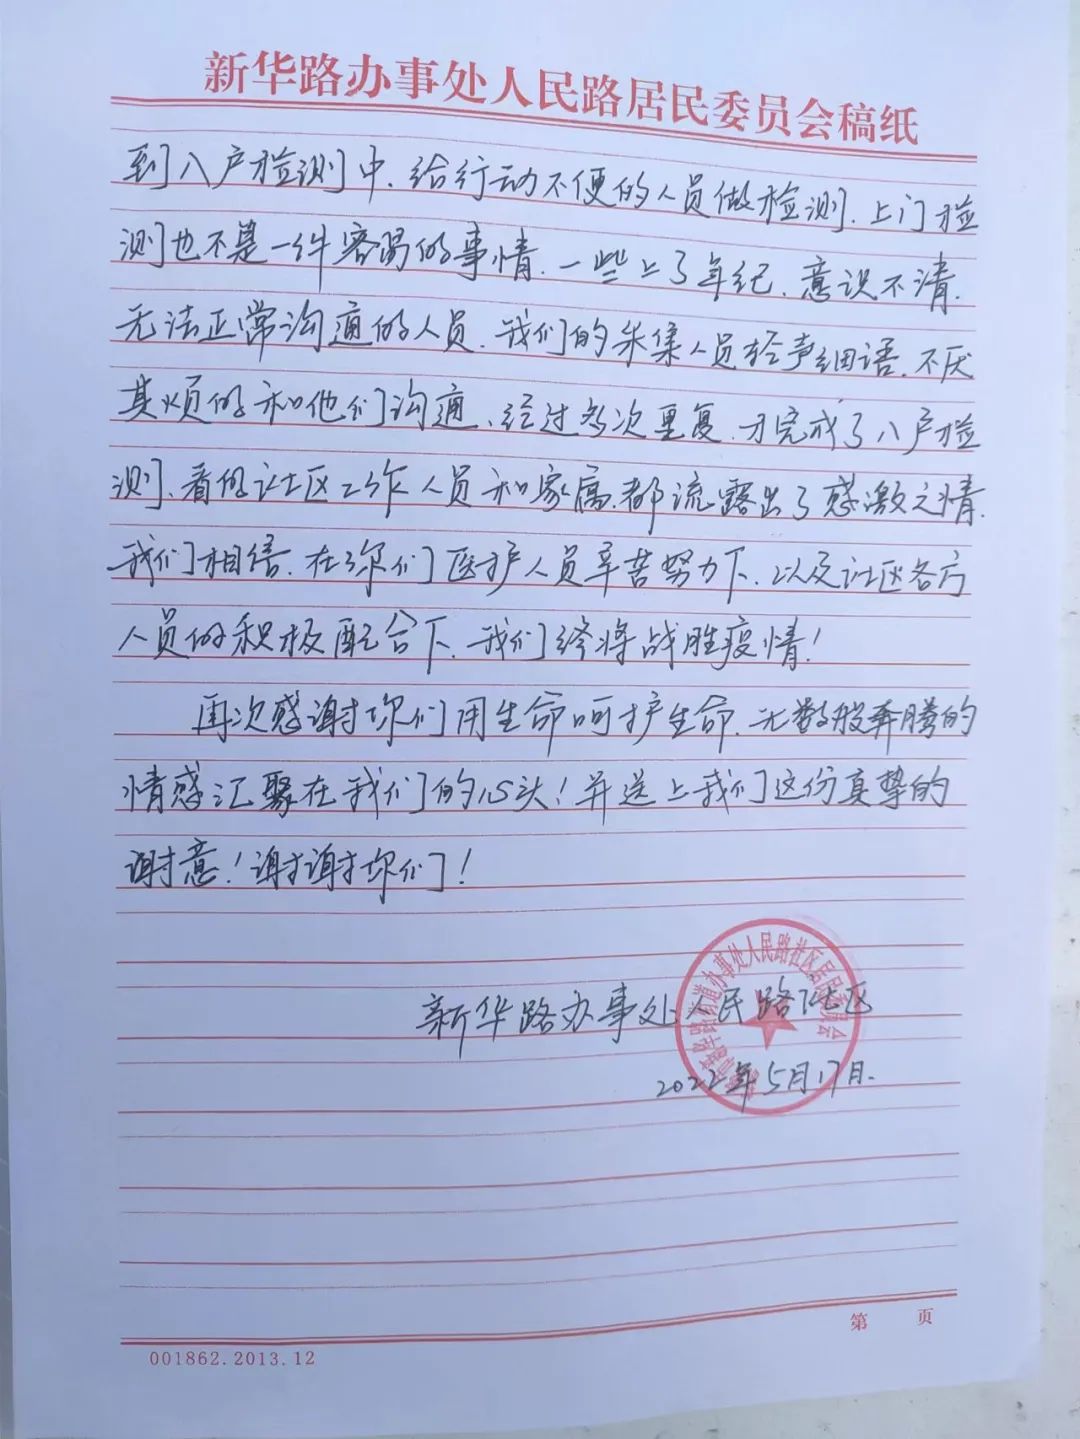 新华路办事处人民路居民委员会稿纸
到入户检测中、给行动不便的人员做检测、上门检
测也不是一件容易的事情、一些上了年纪、意识不清、
无法正常沟通的人员、我们的采集人员轻声细语、不厌
其烦的和他们沟通、经过多次重复、才完成了入户检
测、看的让社区工作人员和家属、都流露出了感激之情、
我们相信、在你们医护人员辛苦努力下、以及社区各方
人员的积极配合下、我们终将战胜疫情！
再次感谢你们用生命呵护生命、无数股奔腾的
情感汇聚在我们的心头！并送上我们这份真挚的
谢意！谢谢你们！
新华路办事处人民路社区
2022年5月17日.
街道办事处人民路社区居民委员会
第 页
001862.2013.12